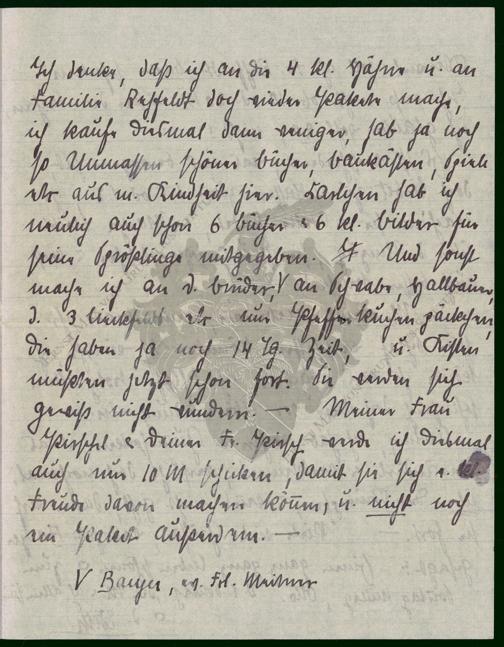 Ich denke, daß ich an die 4 kl. Hähne u. an
Familie Rehfeldt doch wieder Pakete mache,
ich kaufe diesmal dann weniger, hab ja noch
so Unmassen schöner Bücher, Baukästen, Spiele
etc aus m. Kindheit hier. Karlchen hab ich
neulich auch schon 6 Bücher & 6 kl. Bilder für
seine Sprößlinge mitgegeben. Und sonst
mache ich an d. Brüder, V an Schwabe, Hallbauer,
d. 3 etc nur Pfefferkuchenpäckchen,
die haben ja noch 14 Tg. Zeit, u. Kisten
müßten jetzt schon fort. Sie werden sich
gewiß nicht wundern. — Meiner Frau
Pirschel & deiner Fr. Pirsch werde ich diesmal
auch nur 10 M schicken, damit sie sich e. kl.
Freude davon machen könn, u. nicht noch
ein Paket außerdem. —
V Bayer, ev. Frl. Meitner